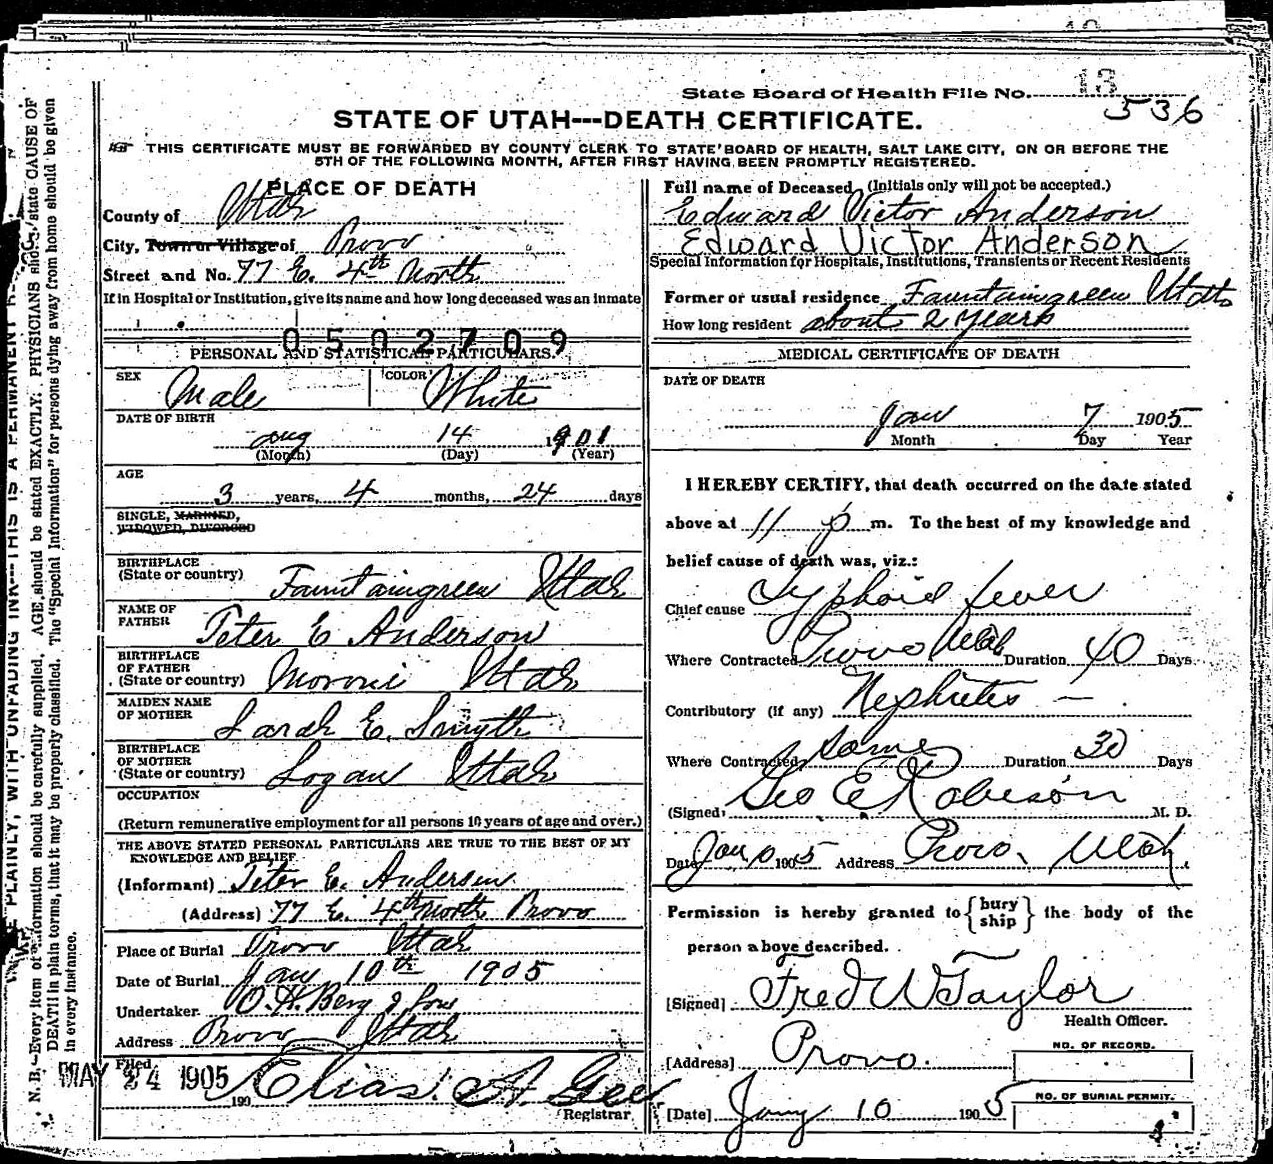 State Board of Health File No. 13
536
STATE OF UTAH---DEATH CERTIFICATE.
THIS CERTIFICATE MUST BE FORWARDED BY COUNTY CLERK TO STATE BOARD OF HEALTH, SALT LAKE CITY, ON OR BEFORE THE
5TH OF THE FOLLOWING MONTH, AFTER FIRST HAVING BEEN PROMPTLY REGISTERED.
PLACE OF DEATH
County of Utah
City, Town or Village of Provo
Street and No. 77 E. 4th North
If in Hospital or Institution, give its name and how long deceased was an inmate
0502709
PERSONAL AND STATISTICAL PARTICULARS.
SEX Male COLOR White
DATE OF BIRTH
Aug 14 1901
(Month) (Day) (Year)
AGE
3 years, 4 months, 24 days
SINGLE, MARRIED,
WIDOWED, DIVORCED
BIRTHPLACE
(State or country) Fauntaingreen Utah
NAME OF
FATHER Peter E Anderson
BIRTHPLACE
OF FATHER
(State or country) Moroni Utah
MAIDEN NAME
OF MOTHER Sarah E. Smyth
BIRTHPLACE
OF MOTHER
(State or country) Logan Utah
OCCUPATION
(Return remunerative employment for all persons 10 years of age and over.)
THE ABOVE STATED PERSONAL PARTICULARS ARE TRUE TO THE BEST OF MY
KNOWLEDGE AND BELIEF
(Informant) Peter E. Anderson
(Address) 77 E. 4th North Provo
Place of Burial Provo Utah
Date of Burial Jan 10th 1905
Undertaker O. H. Berg & Son
Address Provo Utah
Filed
MAY 24 1905 190 Elias A. Gee
Registrar
Full name of Deceased (Initials only will not be accepted.)
Edward Victor Anderson
Edward Victor Anderson
Special Information for Hospitals, Institutions, Transients or Recent Residents
Former or usual residence Fauntaingreen Utah
How long resident about 2 years
MEDICAL CERTIFICATE OF DEATH
DATE OF DEATH
Jan 7 1905
Month Day Year
I HEREBY CERTIFY, that death occurred on the date stated
above at 11 p m. To the best of my knowledge and
belief cause of death was, viz.:
Chief cause Typhoid fever
Where Contracted Provo Utah Duration 40 Days
Contributory (if any) Nephrites —
Where Contracted same Duration 30 Days
(Signed) Geo E Robison M. D.
Date Jan 1905 Address Provo, Utah.
Permission is hereby granted to { bury ship } the body of the
person above described.
[Signed] Fred W Taylor
Health Officer.
[Address] Provo.
NO. OF RECORD.
[Date] Jany 10 1905
NO. OF BURIAL PERMIT.
N. B.—Every item of information should be carefully supplied. AGE should be stated EXACTLY. PHYSICIANS should state CAUSE OF
DEATH in plain terms, that it may be properly classified. The "Special Information" for persons dying away from home should be given
in every instance.
PLAINLY, WITH UNFADING INK---THIS IS A PERMANENT